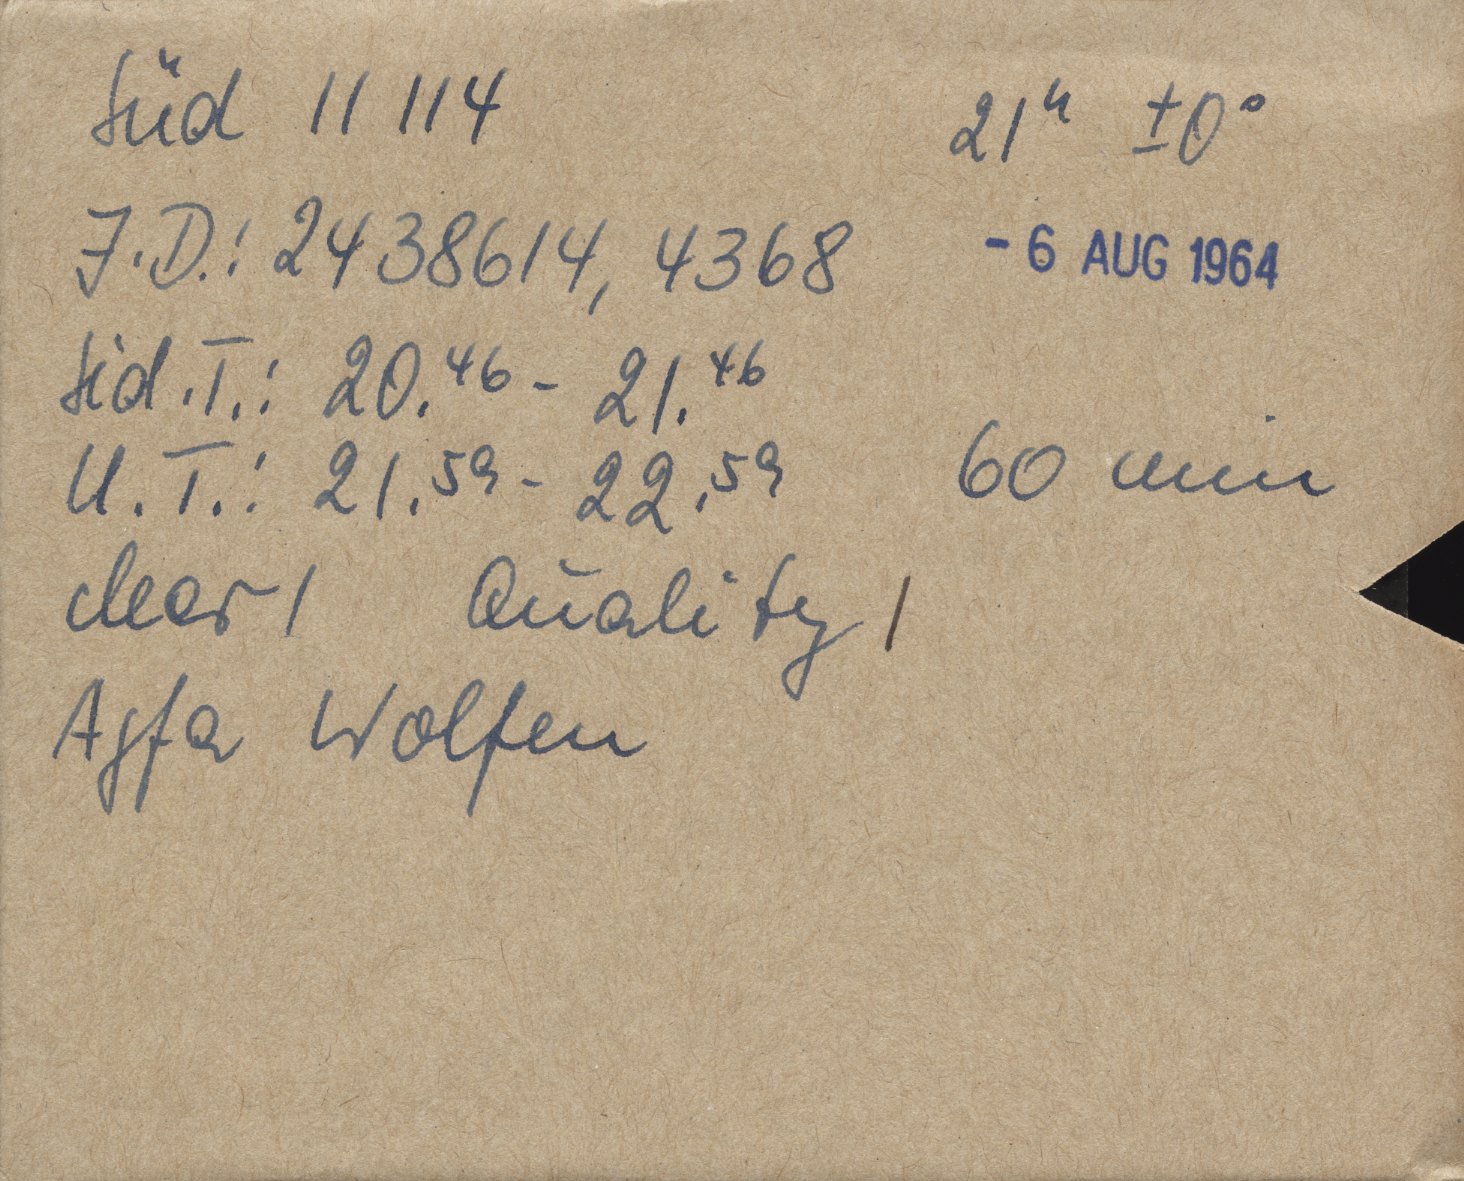 Süd 11 114 21ʰ ±0°
J.D.: 2438614,4368 - 6 AUG 1964
Sid.T.: 20.⁴⁶ - 21.⁴⁶
U.T.: 21.⁵⁹ - 22.⁵⁹ 60 min
clear 1 Quality 1
Agfa Wolfen